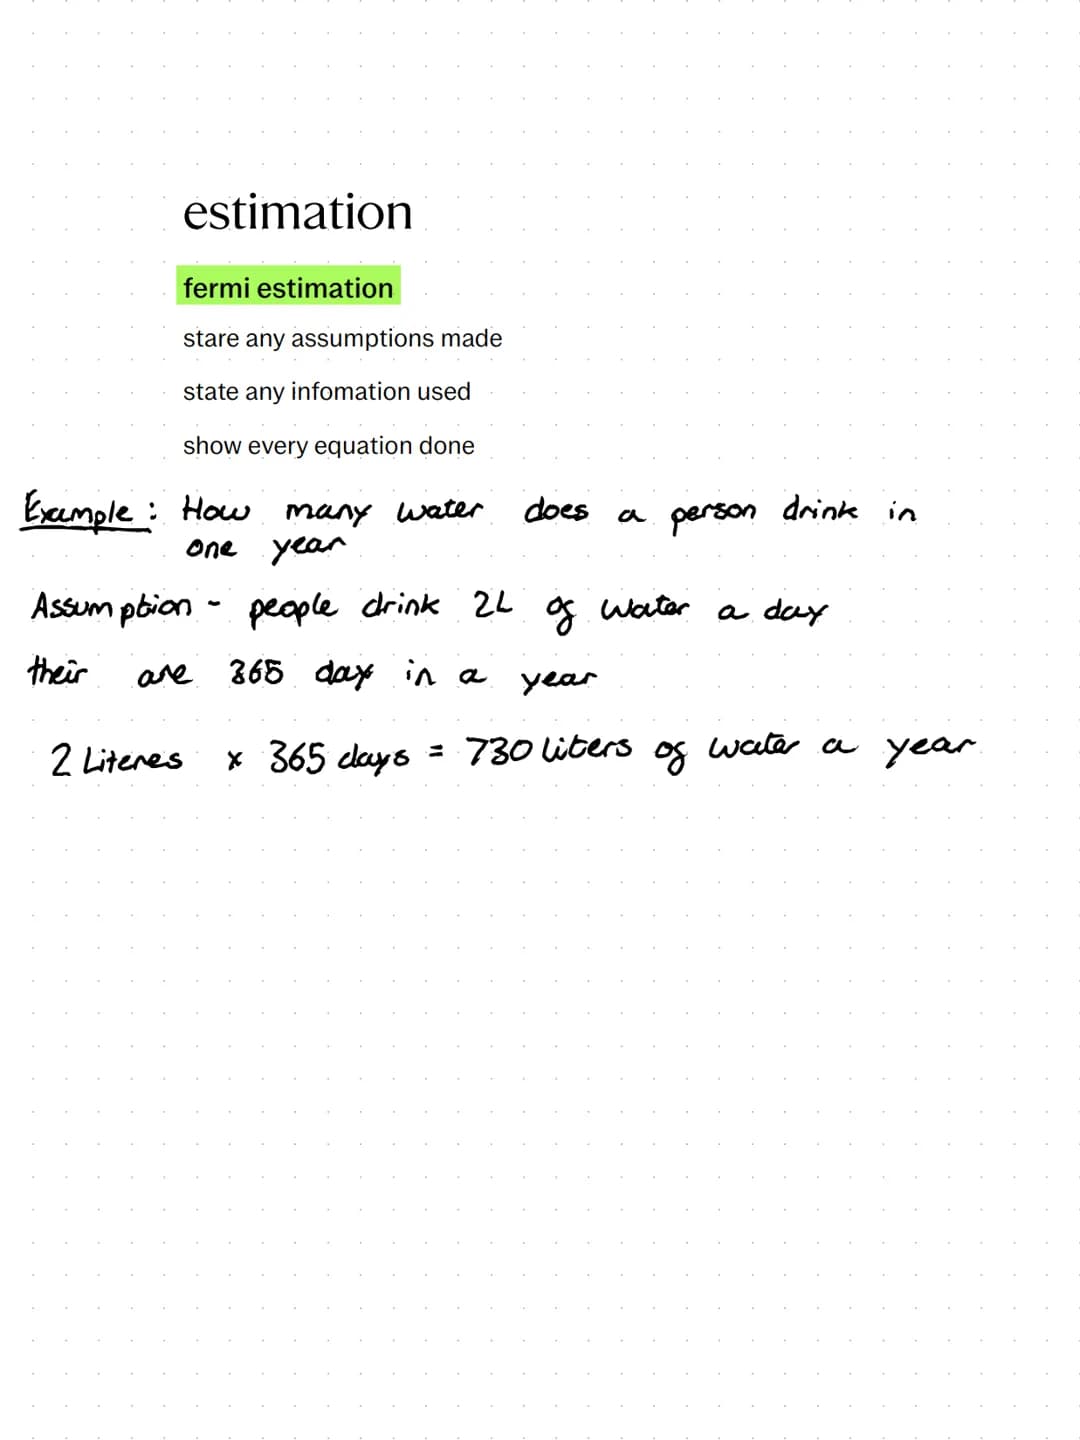 estimation
fermi estimation
stare any assumptions made
state any infomation used
show every equation done
Example : How many water does a person drink in
one year
Assumption - people drink 2L of water a day
their are 365 day in a year
2 Literes x 365 days = 730 liters of water a year